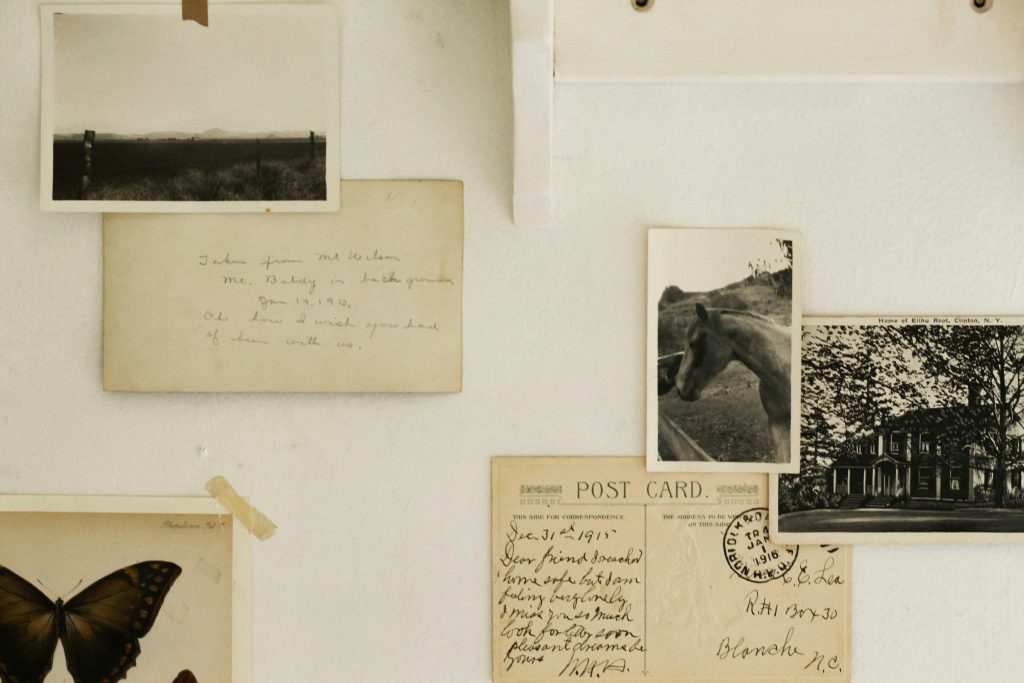 Taken from Mt Wilson
Mt. Baldy in background
Jan 19, 1913.
Oh how I wish you had
of been with us.
Home of Elihu Root, Clinton, N. Y.
POST CARD.
THIS SIDE FOR CORRESPONDENCE
THE ADDRESS TO BE
ON THIS SIDE
Dec. 31st 1915
Dear friend I reached
home safe but I am
feling very lonely
I miss you so much
look for letter soon
pleasant dreams be
yours
NORFOLK
TR
JAN
1
1916
R.P.O.
C. E. Lea
R.#1 Box 30
Blanche
N.C.